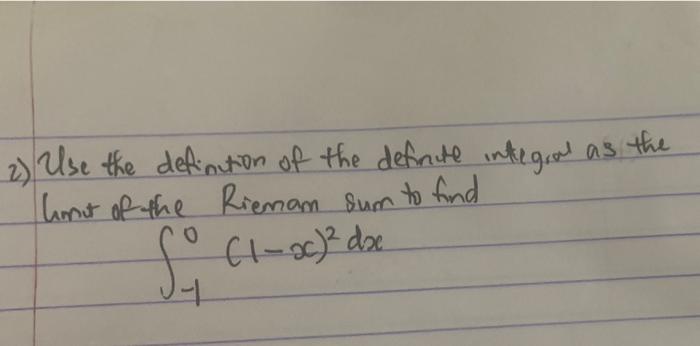 2) Use the definition of the definite integral as the
limit of the Riemam sum to find
∫₋₁⁰ (1-x)² dx